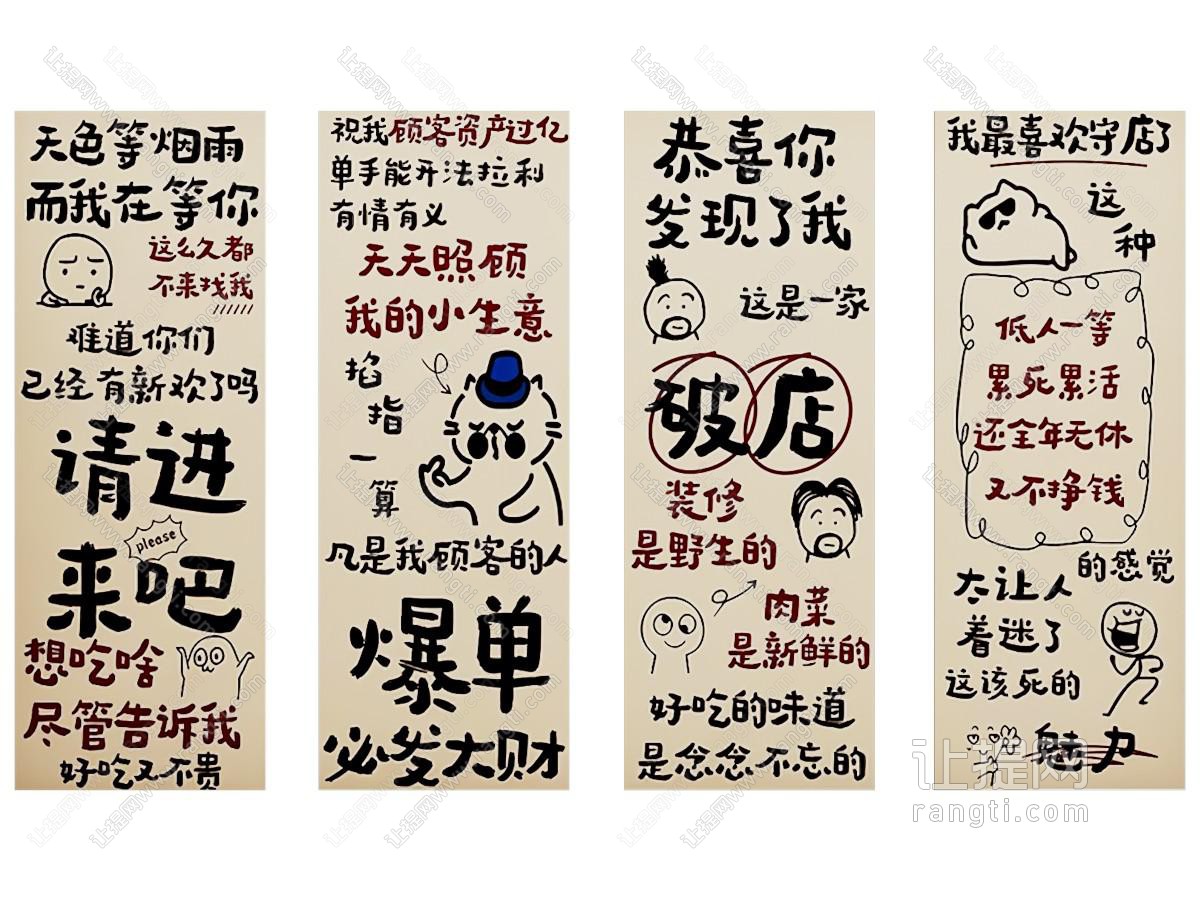 天色等烟雨
而我在等你
这么久都
不来找我
难道你们
已经有新欢了吗
请进
please
来吧
想吃啥
尽管告诉我
好吃又不贵
祝我顾客资产过亿
单手能开法拉利
有情有义
天天照顾
我的小生意
掐
指
一
算
凡是我顾客的人
爆单
必发大财
恭喜你
发现了我
这是一家
破店
装修
是野生的
肉菜
是新鲜的
好吃的味道
是念念不忘的
我最喜欢守店了
这
种
低人一等
累死累活
还全年无休
又不挣钱
的感觉
太让人
着迷了
这该死的
魅力
让提网
rangti.com